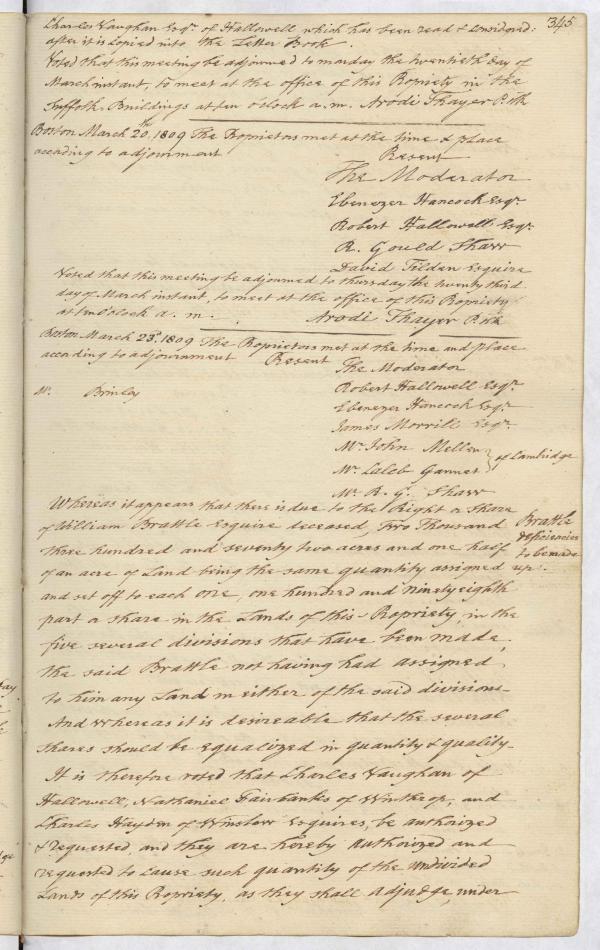 345
Charles Vaughan Esqr. of Hallowell which has been read & considered:
after it is copied into the Letter Book.
Voted that this meeting be adjourned to monday the twentieth day of
March instant, to meet at the office of this Propriety in the
Suffolk Buildings at ten oClock a.m. Arodi Thayer P. Clk
Boston March 20th, 1809 The Proprietors met at the time & place
according to adjournment Present
The Moderator
Ebenezer Hancock Esqr.
Robert Hallowell Esqr.
R. Gould Shaw
David Tilden Esquire
Voted that this meeting be adjourned to thursday the twenty third
day of March instant, to meet at the office of this Propriety
at ten oClock a. m. Arodi Thayer P. Clk
Boston March 23d. 1809 The Proprietors met at the time and place
according to adjournment Present The Moderator
Robert Hallowell Esqr.
Mr. Brinley
Ebenezer Hancock Esqr.
James Morrill Esqr.
Mr. John Mellen
of Cambridge
Mr. Caleb Gannet
Mr. R. G. Shaw
Whereas it appears that there is due to the Right or Share
of William Brattle Esquire deceased, Two Thousand
Brattle
deficiencies
to be made
up.
three hundred and seventy two acres and one half
of an acre of Land being the same quantity assigned
and set off to each one, one hundred and ninety eighth
part or share in the Lands of this Propriety, in the
five several divisions that have been made,
the said Brattle not having had assigned
to him any Land in either of the said divisions
And whereas it is desireable that the several
shares should be equalized in quantity & quality
It is therefore voted that Charles Vaughan of
Hallowell, Nathaniel Fairbanks of Winthrop, and
Charles Hayden of Winslow Esquires, be authorized
& requested, and they are hereby authorized and
requested to cause such quantity of the undivided
Lands of this Propriety, as they shall adjudge, under